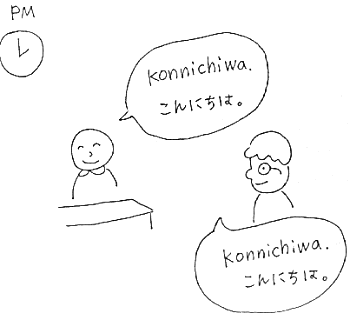 PM
konnichiwa.
こんにちは。
konnichiwa.
こんにちは。